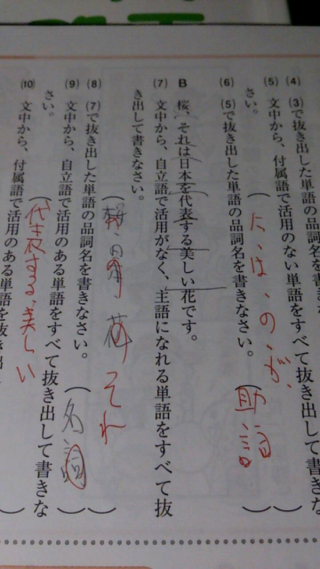 (4) (3)で抜き出した単語の品詞名を書きなさい。
(5) 文中から、付属語で活用のない単語をすべて抜き出して書きな
さい。
に、は、の、が、
(6) (5)で抜き出した単語の品詞名を書きなさい。
助詞
B 桜、それは日本を代表する美しい花です。
(7) 文中から、自立語で活用がなく、主語になれる単語をすべて抜
き出して書きなさい。
花 それ
(8) (7)で抜き出した単語の品詞名を書きなさい。
名詞
(9) 文中から、自立語で活用のある単語をすべて抜き出して書きな
さい。
代表する、美しい
(10) 文中から、付属語で活用のある単語を抜き出